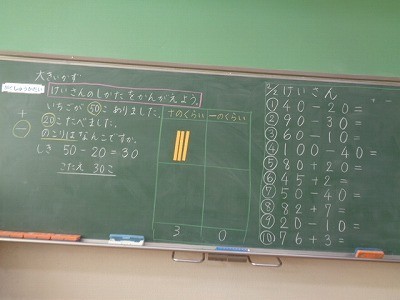 大きいかず
けいさんのしかたをかんがえよう。
いちごが50こありました。
20こたべました。
のこりはなんこですか。
しき 50-20=30
こたえ 30こ
+
-
十のくらい 一のくらい
3 0
けいさん
① 40-20=
② 90-30=
③ 60-10=
④ 100-40=
⑤ 80+20=
⑥ 45+2=
⑦ 50-40=
⑧ 82+7=
⑨ 20-10=
⑩ 76+3=